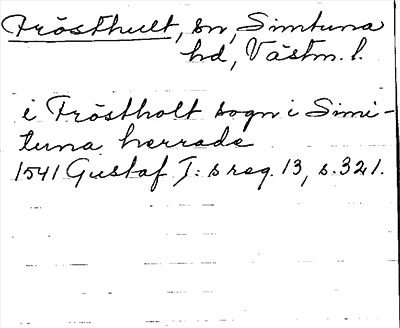 Frösthult, sn, Simtuna
hd, Västm. l.
i Fröstholt sogn i Simi-
tuna herrade
1541 Gustaf I: s reg. 13, s. 321.